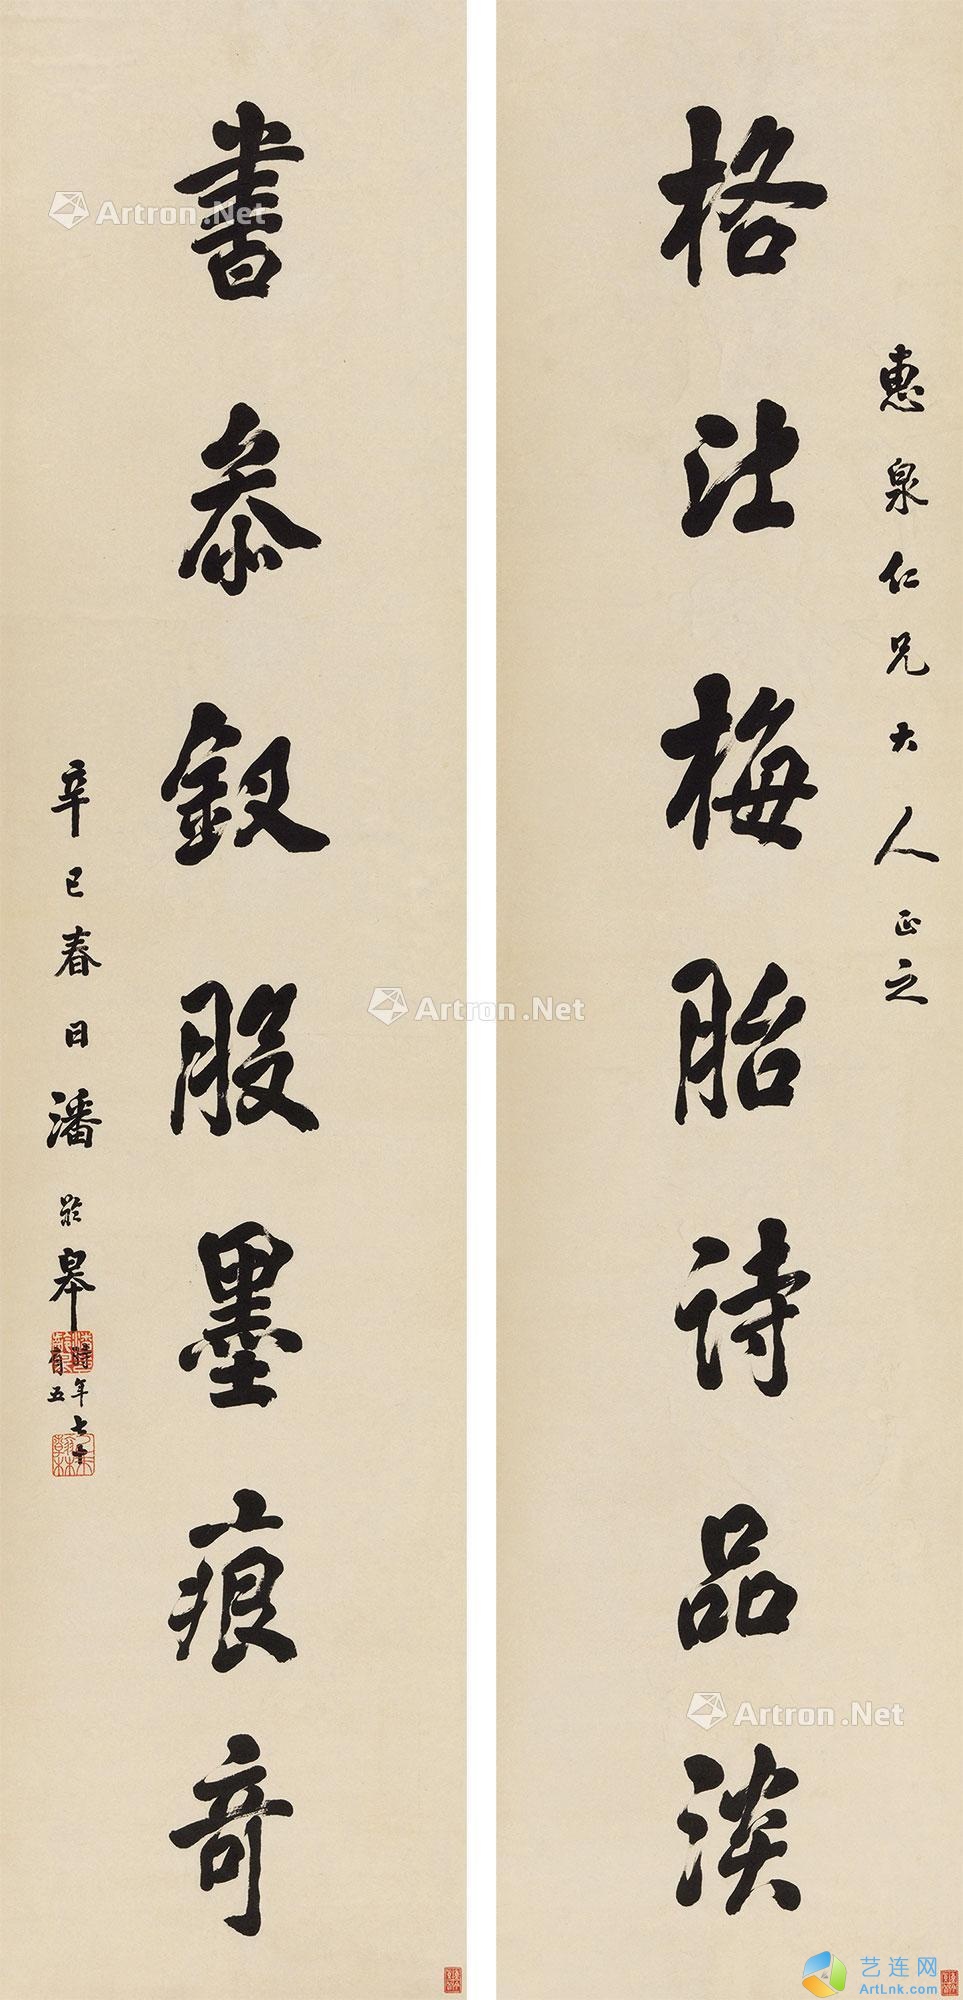 惠泉仁兄大人正之
格梅胎詩品淡
書參釵股墨痕奇
辛巳春日潘齡皋
時年七十
有五
Artron.Net
Artron.Net
Artron.Net
艺连网
ArtLnk.com